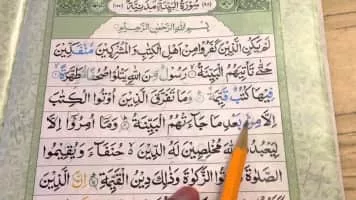 سُورَةُ الْبَيِّنَةِ مَدَنِيَّةٌ
بِسْمِ اللهِ الرَّحْمٰنِ الرَّحِيْمِ
لَمْ يَكُنِ الَّذِيْنَ كَفَرُوْا مِنْ اَهْلِ الْكِتٰبِ وَالْمُشْرِكِيْنَ مُنْفَكِّيْنَ
حَتّٰى تَاْتِيَهُمُ الْبَيِّنَةُ رَسُوْلٌ مِّنَ اللهِ يَتْلُوْا صُحُفًا مُّطَهَّرَةً
فِيْهَا كُتُبٌ قَيِّمَةٌ وَمَا تَفَرَّقَ الَّذِيْنَ اُوْتُوا الْكِتٰبَ
اِلَّا مِنْۢ بَعْدِ مَا جَآءَتْهُمُ الْبَيِّنَةُ وَمَآ اُمِرُوْٓا اِلَّا
لِيَعْبُدُوا اللهَ مُخْلِصِيْنَ لَهُ الدِّيْنَ حُنَفَآءَ وَيُقِيْمُوا
الصَّلٰوةَ وَيُؤْتُوا الزَّكٰوةَ وَذٰلِكَ دِيْنُ الْقَيِّمَةِ اِنَّ الَّذِيْنَ